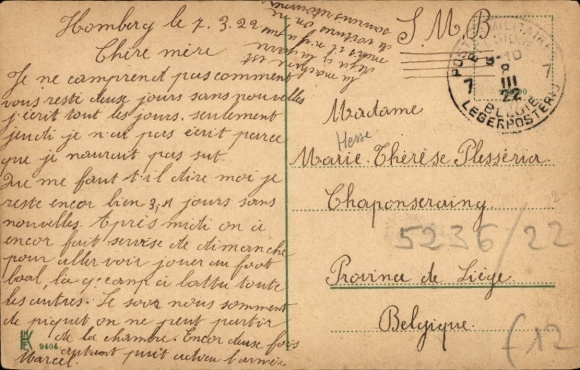 Homberg le 7.3.22
Chère mère
Je ne comprend pas comment
vous resté deuse jours sans nouvelles
j'écrit tout les jours. seulement
jeudi je n'ai pas écrit parce
que je n'aurait pas sut.
Que me faut t'il dire moi je
reste encor bien 3, 4 jours sans
nouvelles. Après midi on à
encor fait servise de dimanche
pour aller voir jouer au foot
boal, la 9e camp à battu toute
les autres. Le soor nous somment
de piquet on ne peut partir
de la chambre. Encor deuse fois
autant puit adieu l'armée
Marcel.
S. M. B
POSTES MILITAIRES
BELGIQUE
8 III 22
7 7
BELGIE
LEGERPOSTERIJ
Madame
Hesse
Marie Thérèse Plesséria
Chaponseraing
5236/22
Province de Liège
Belgique
£12
9404